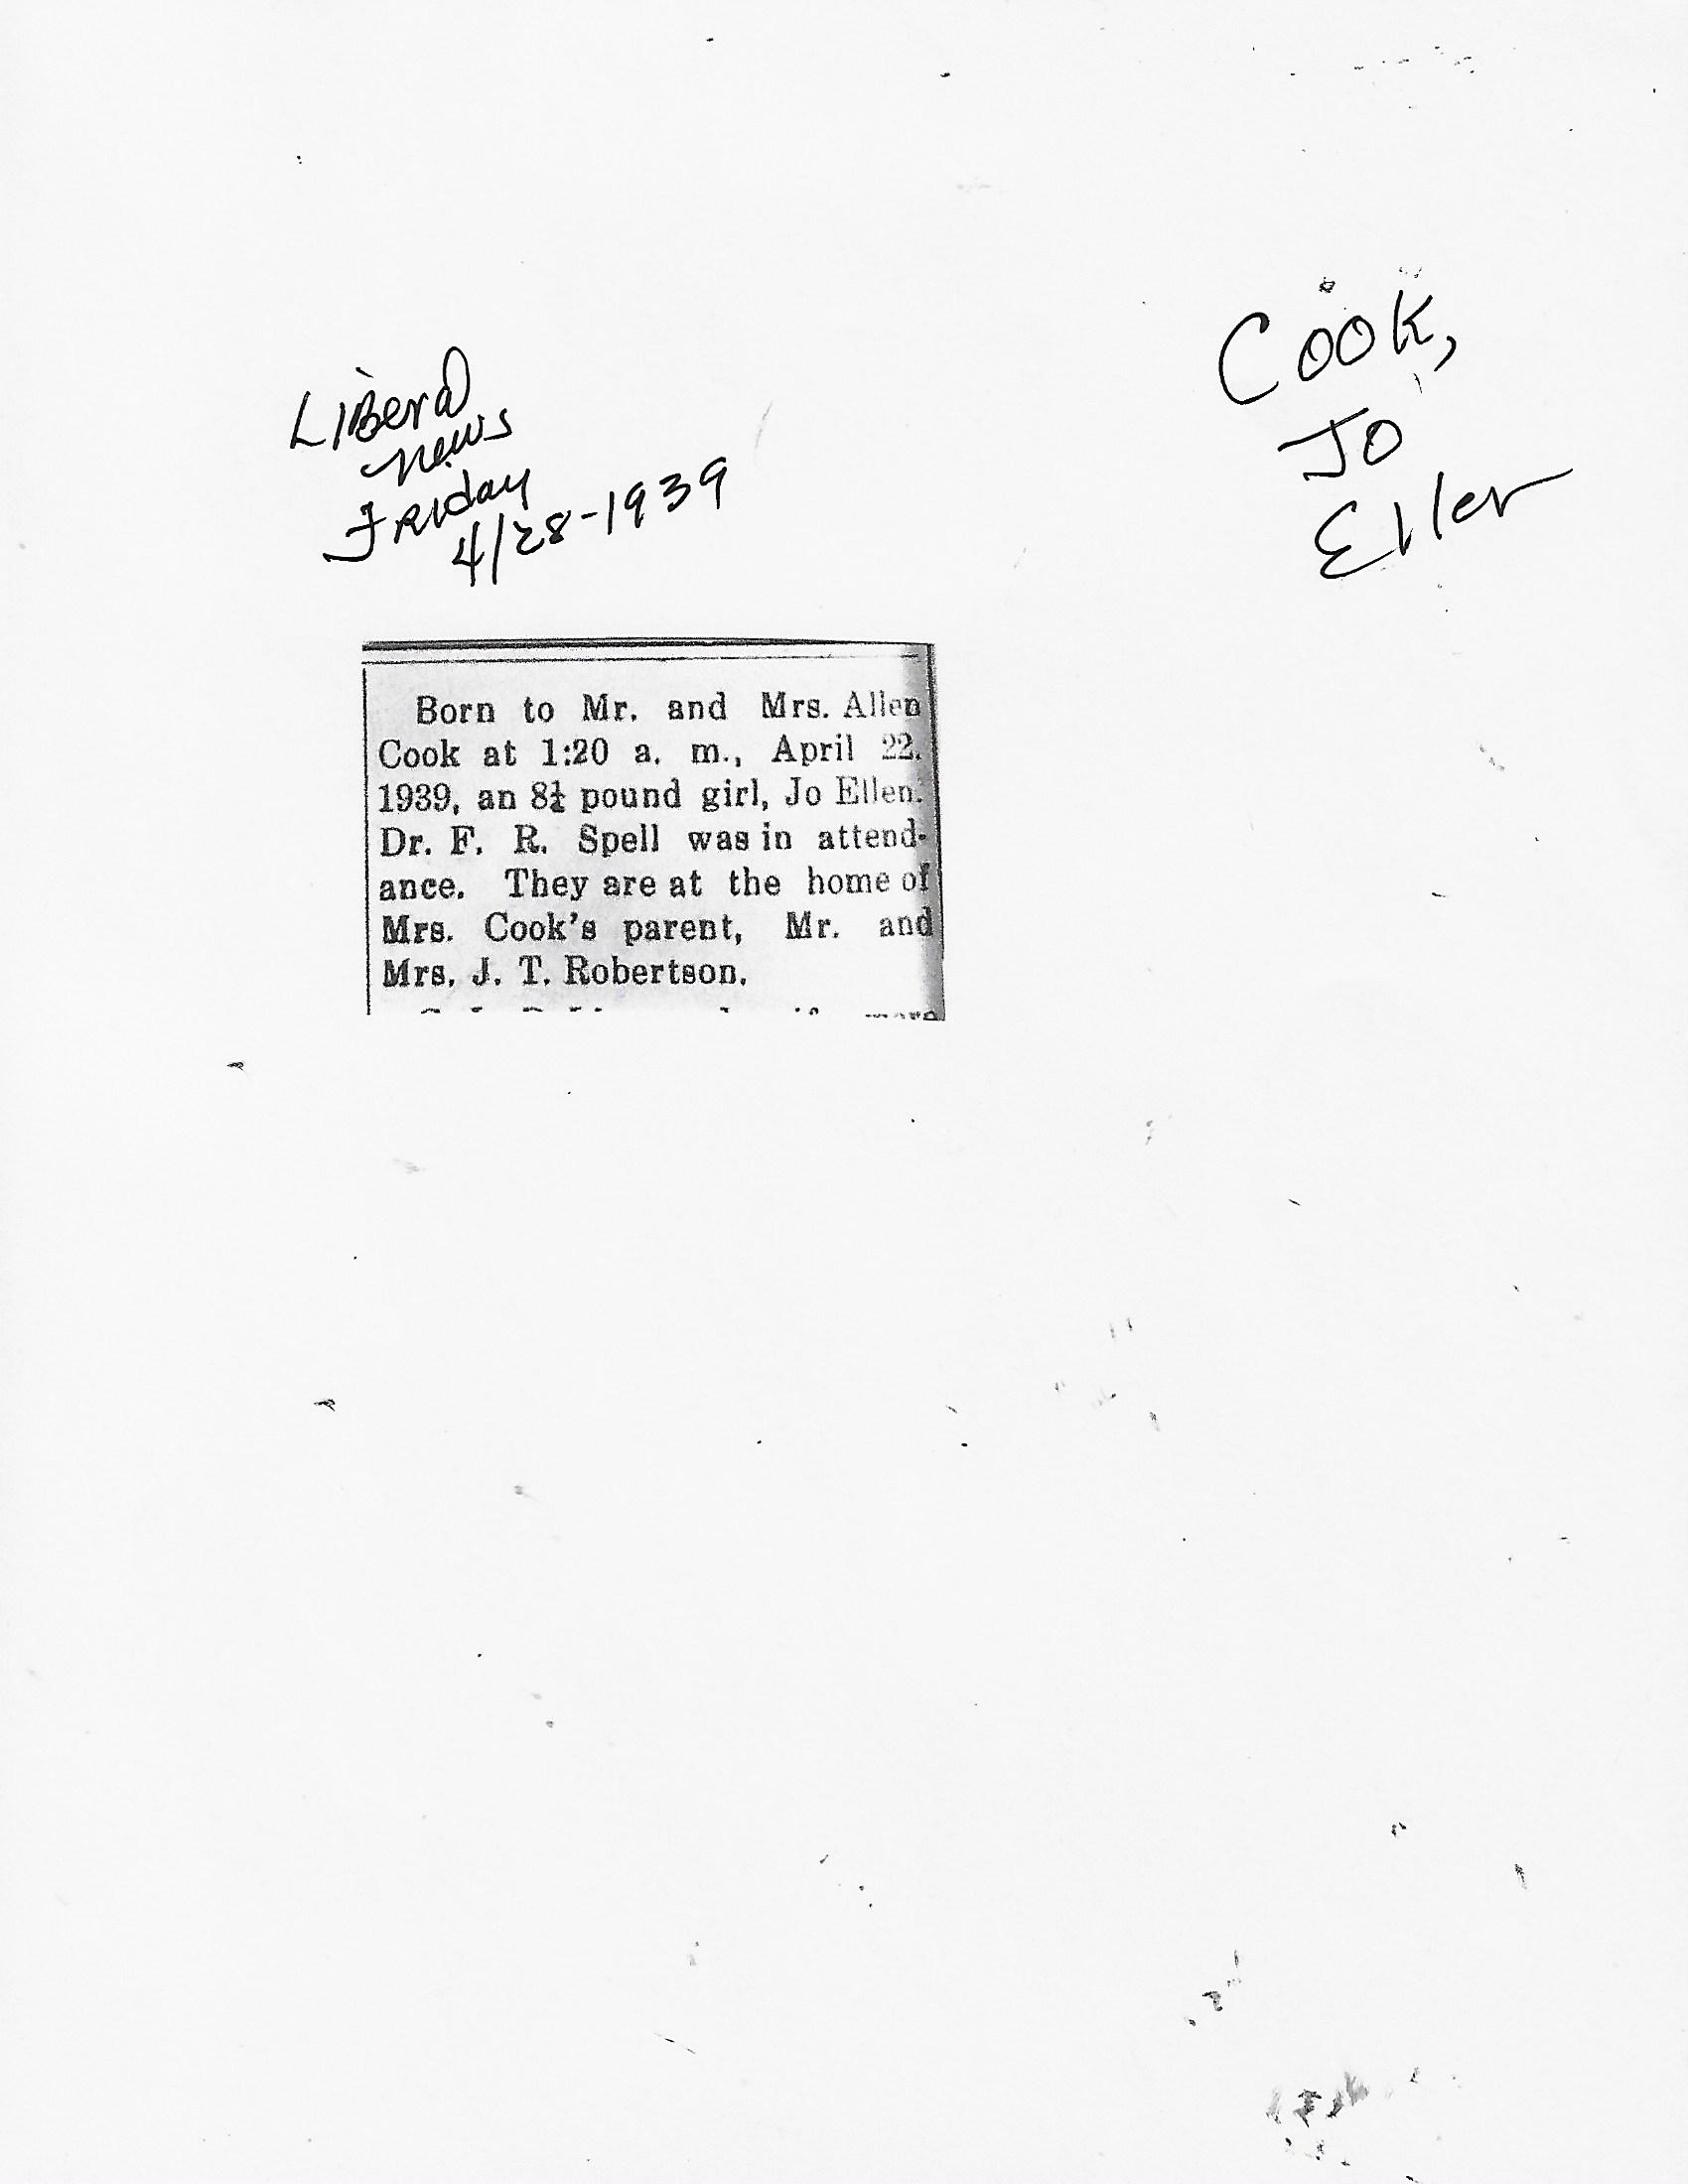 Cook,
Jo
Ellen
Liberal
News
Friday
4/28-1939
Born to Mr. and Mrs. Allen
Cook at 1:20 a. m., April 22.
1939, an 8½ pound girl, Jo Ellen.
Dr. F. R. Spell was in attend-
ance. They are at the home of
Mrs. Cook's parent, Mr. and
Mrs. J. T. Robertson.